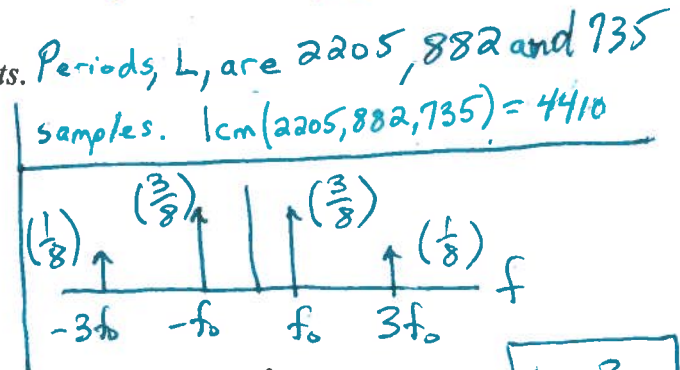 ts. Periods, L, are 2205, 882 and 735
samples. lcm(2205,882,735) = 4410
(1/8) (3/8) (3/8) (1/8)
-3f₀ -f₀ f₀ 3f₀ f